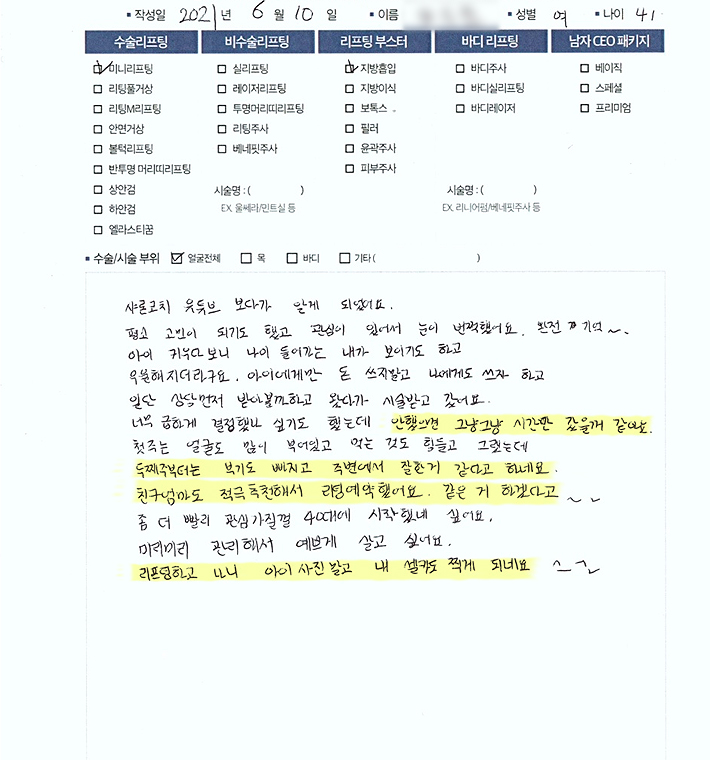 작성일 2021년 6월 10일 이름 성별 여 나이 41
수술리프팅 비수술리프팅 리프팅 부스터 바디 리프팅 남자 CEO 패키지
미니리프팅 실리프팅 지방흡입 바디주사 베이직
리팅풀거상 레이저리프팅 지방이식 바디실리프팅 스페셜
리팅M리프팅 투명머리띠리프팅 보톡스 바디레이저 프리미엄
안면거상 리팅주사 필러
볼턱리프팅 베네핏주사 윤곽주사
반투명 머리띠리프팅 피부주사
상안검 시술명 : ( ) 시술명 : ( )
하안검 EX. 울쎄라/민트실 등 EX. 리니어펌/베네핏주사 등
엘라스티꿈
수술/시술 부위 얼굴전체 목 바디 기타 ( )
샤론코치 유튜브 보다가 알게 되었어요.
평소 고민이 되기도 했고 관심이 있어서 눈이 번쩍했어요. 완전 기억~.
아이 키우다보니 나이 들어가는 내가 보이기도 하고
우울해지더라구요. 아이에게만 돈 쓰지말고 나에게도 쓰자 하고
일단 상담먼저 받아볼까하고 왔다가 시술받고 갔어요.
너무 급하게 결정했나 싶기도 했는데 안했으면 그냥그냥 시간만 갔을거 같아요.
첫주는 얼굴도 많이 부어있고 먹는 것도 힘들고 그랬는데
두째주부터는 붓기도 빠지고 주변에서 잘한거 같다고 하네요.
친구엄마도 적극추천해서 리팅예약했어요. 같은 거 하겠다고 ~~
좀 더 빨리 관심가질껄 40대에 시작했네 싶어요.
미리미리 관리해서 예쁘게 살고 싶어요.
리프팅하고 나니 아이 사진 말고 내 셀카도 찍게 되네요